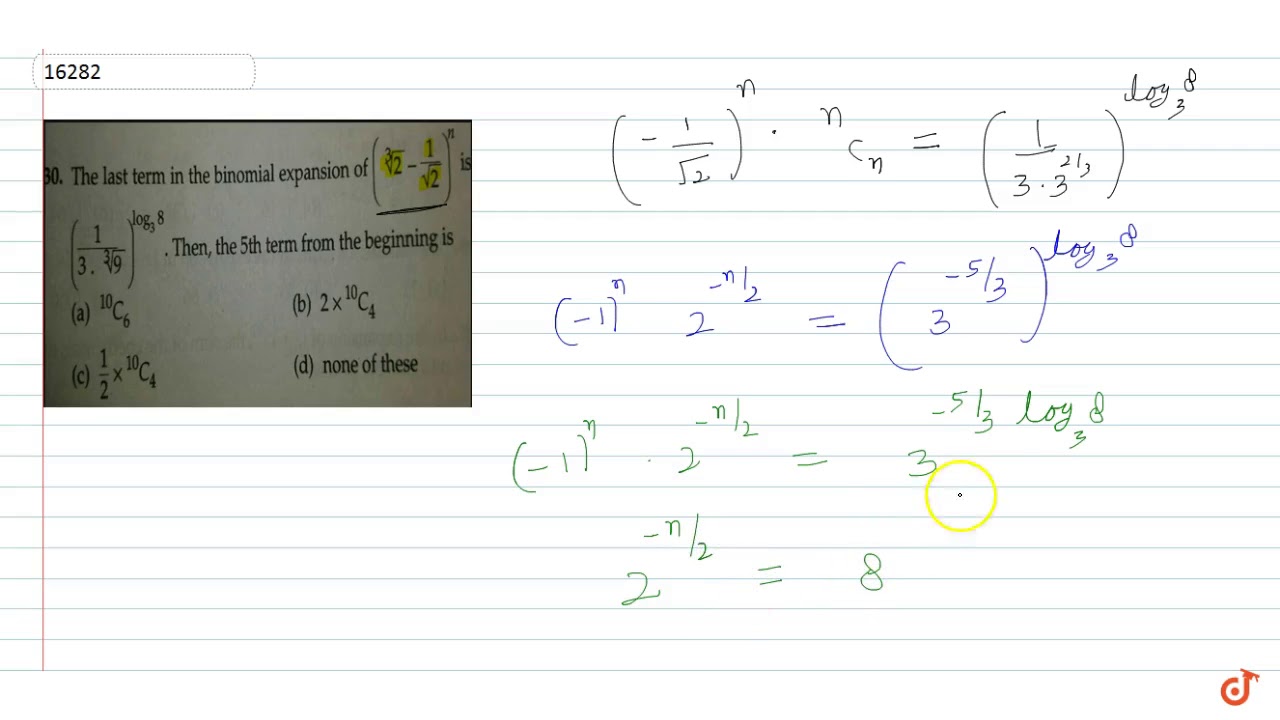 16282
30. The last term in the binomial expansion of (∛2 − 1/√2)ⁿ is
(1/(3 . ∛9))^(log₃ 8) . Then, the 5th term from the beginning is
(a) ¹⁰C₆ (b) 2 × ¹⁰C₄
(c) 1/2 × ¹⁰C₄ (d) none of these
(− 1/√2)ⁿ · ⁿCₙ = (1/(3 · 3^(2/3)))^(log₃ 8)
(−1)ⁿ 2^(−n/2) = (3^(−5/3))^(log₃ 8)
(−1)ⁿ · 2^(−n/2) = 3^(−5/3 log₃ 8)
2^(−n/2) = 8